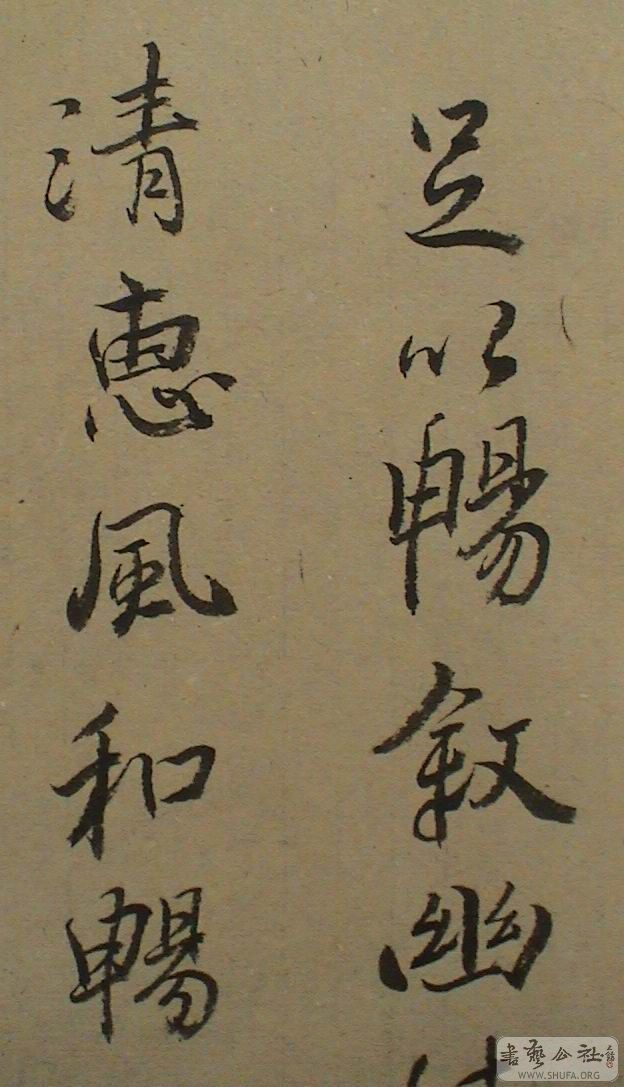 足以暢敘幽
清惠風和暢
書藝公社
WWW.SHUFA.ORG